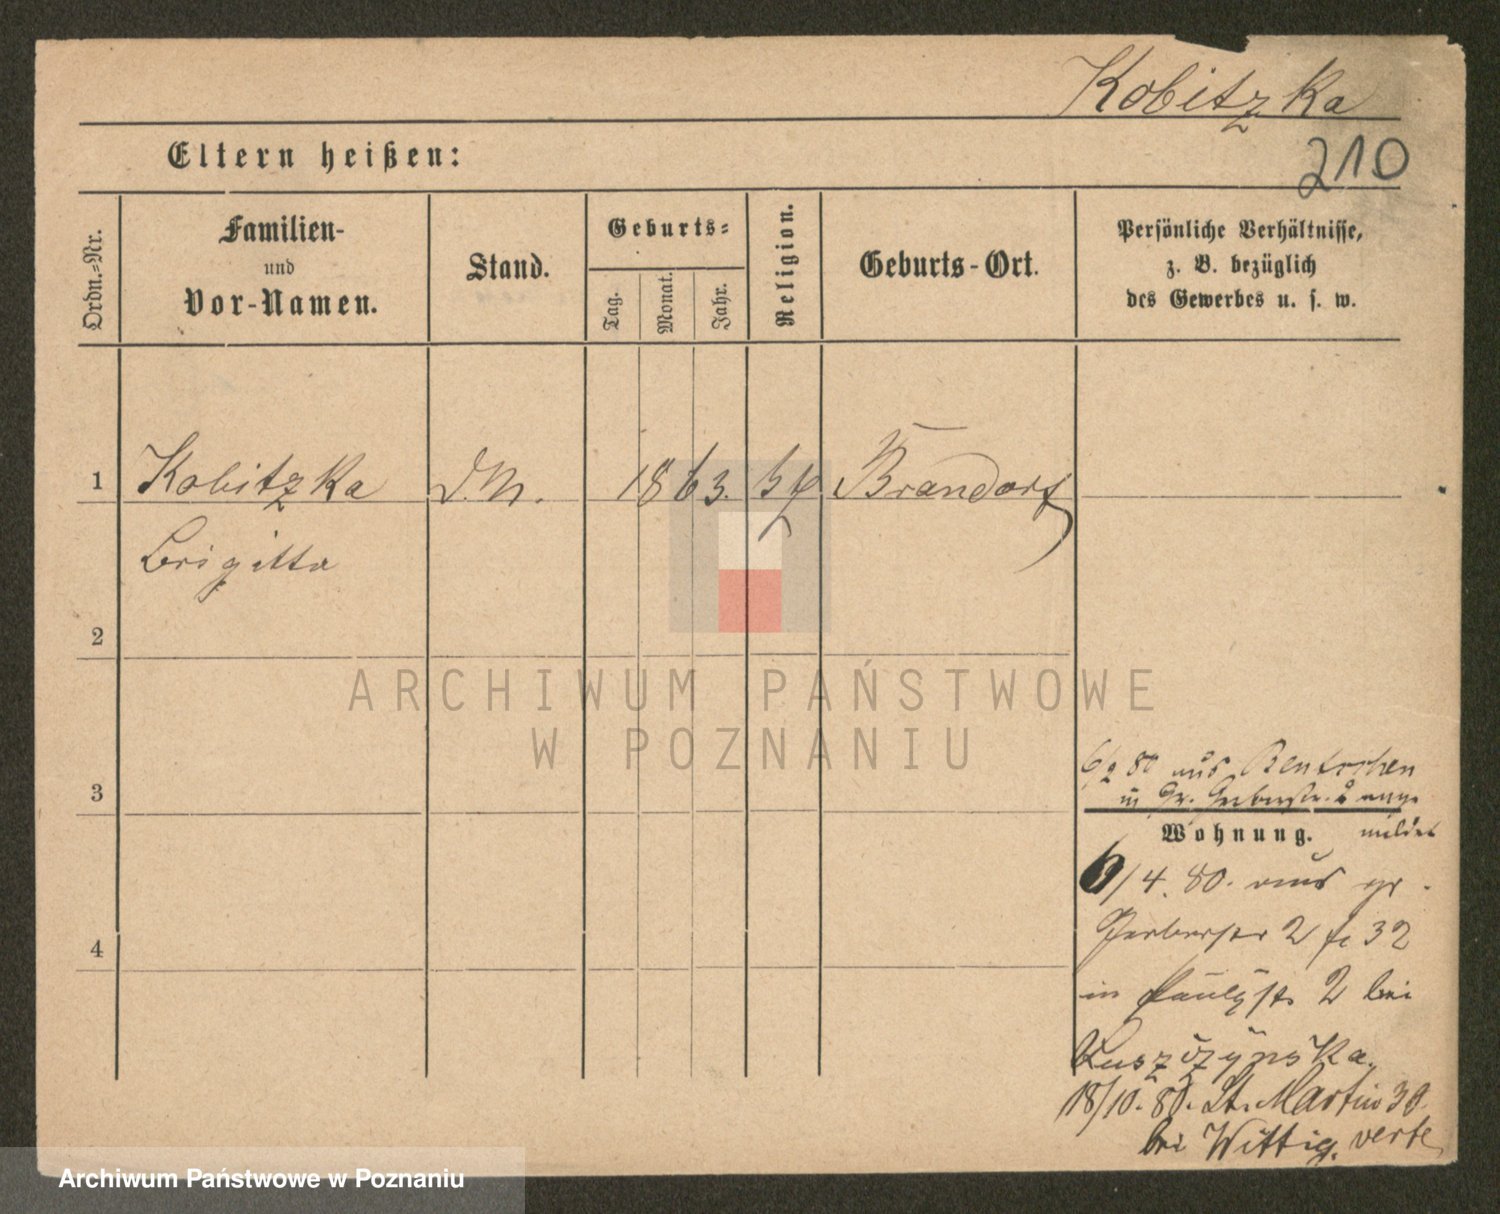 Kobitzka
Eltern heißen:
210
Ordn.-Nr.
Familien-
und
Vor-Namen.
Stand.
Geburts-
Tag.
Monat.
Jahr.
Religion.
Geburts-Ort.
Persönliche Verhältnisse,
z. B. bezüglich
des Gewerbes u. s. w.
1 Kobitzka D.M. 1863. Brandorf
Brigitta
2
ARCHIWUM PAŃSTWOWE
W POZNANIU
3
6/2 80 aus Bentschen
in Gr. Gerberstr. 2 ange
Wohnung. meldet
6/4. 80. aus gr.
Gerberstr 2 32
4
in Paulyst. 2 bei
Ruszczynska.
18/10. 80. St. Martin 39
bei Wittig. verte
Archiwum Państwowe w Poznaniu